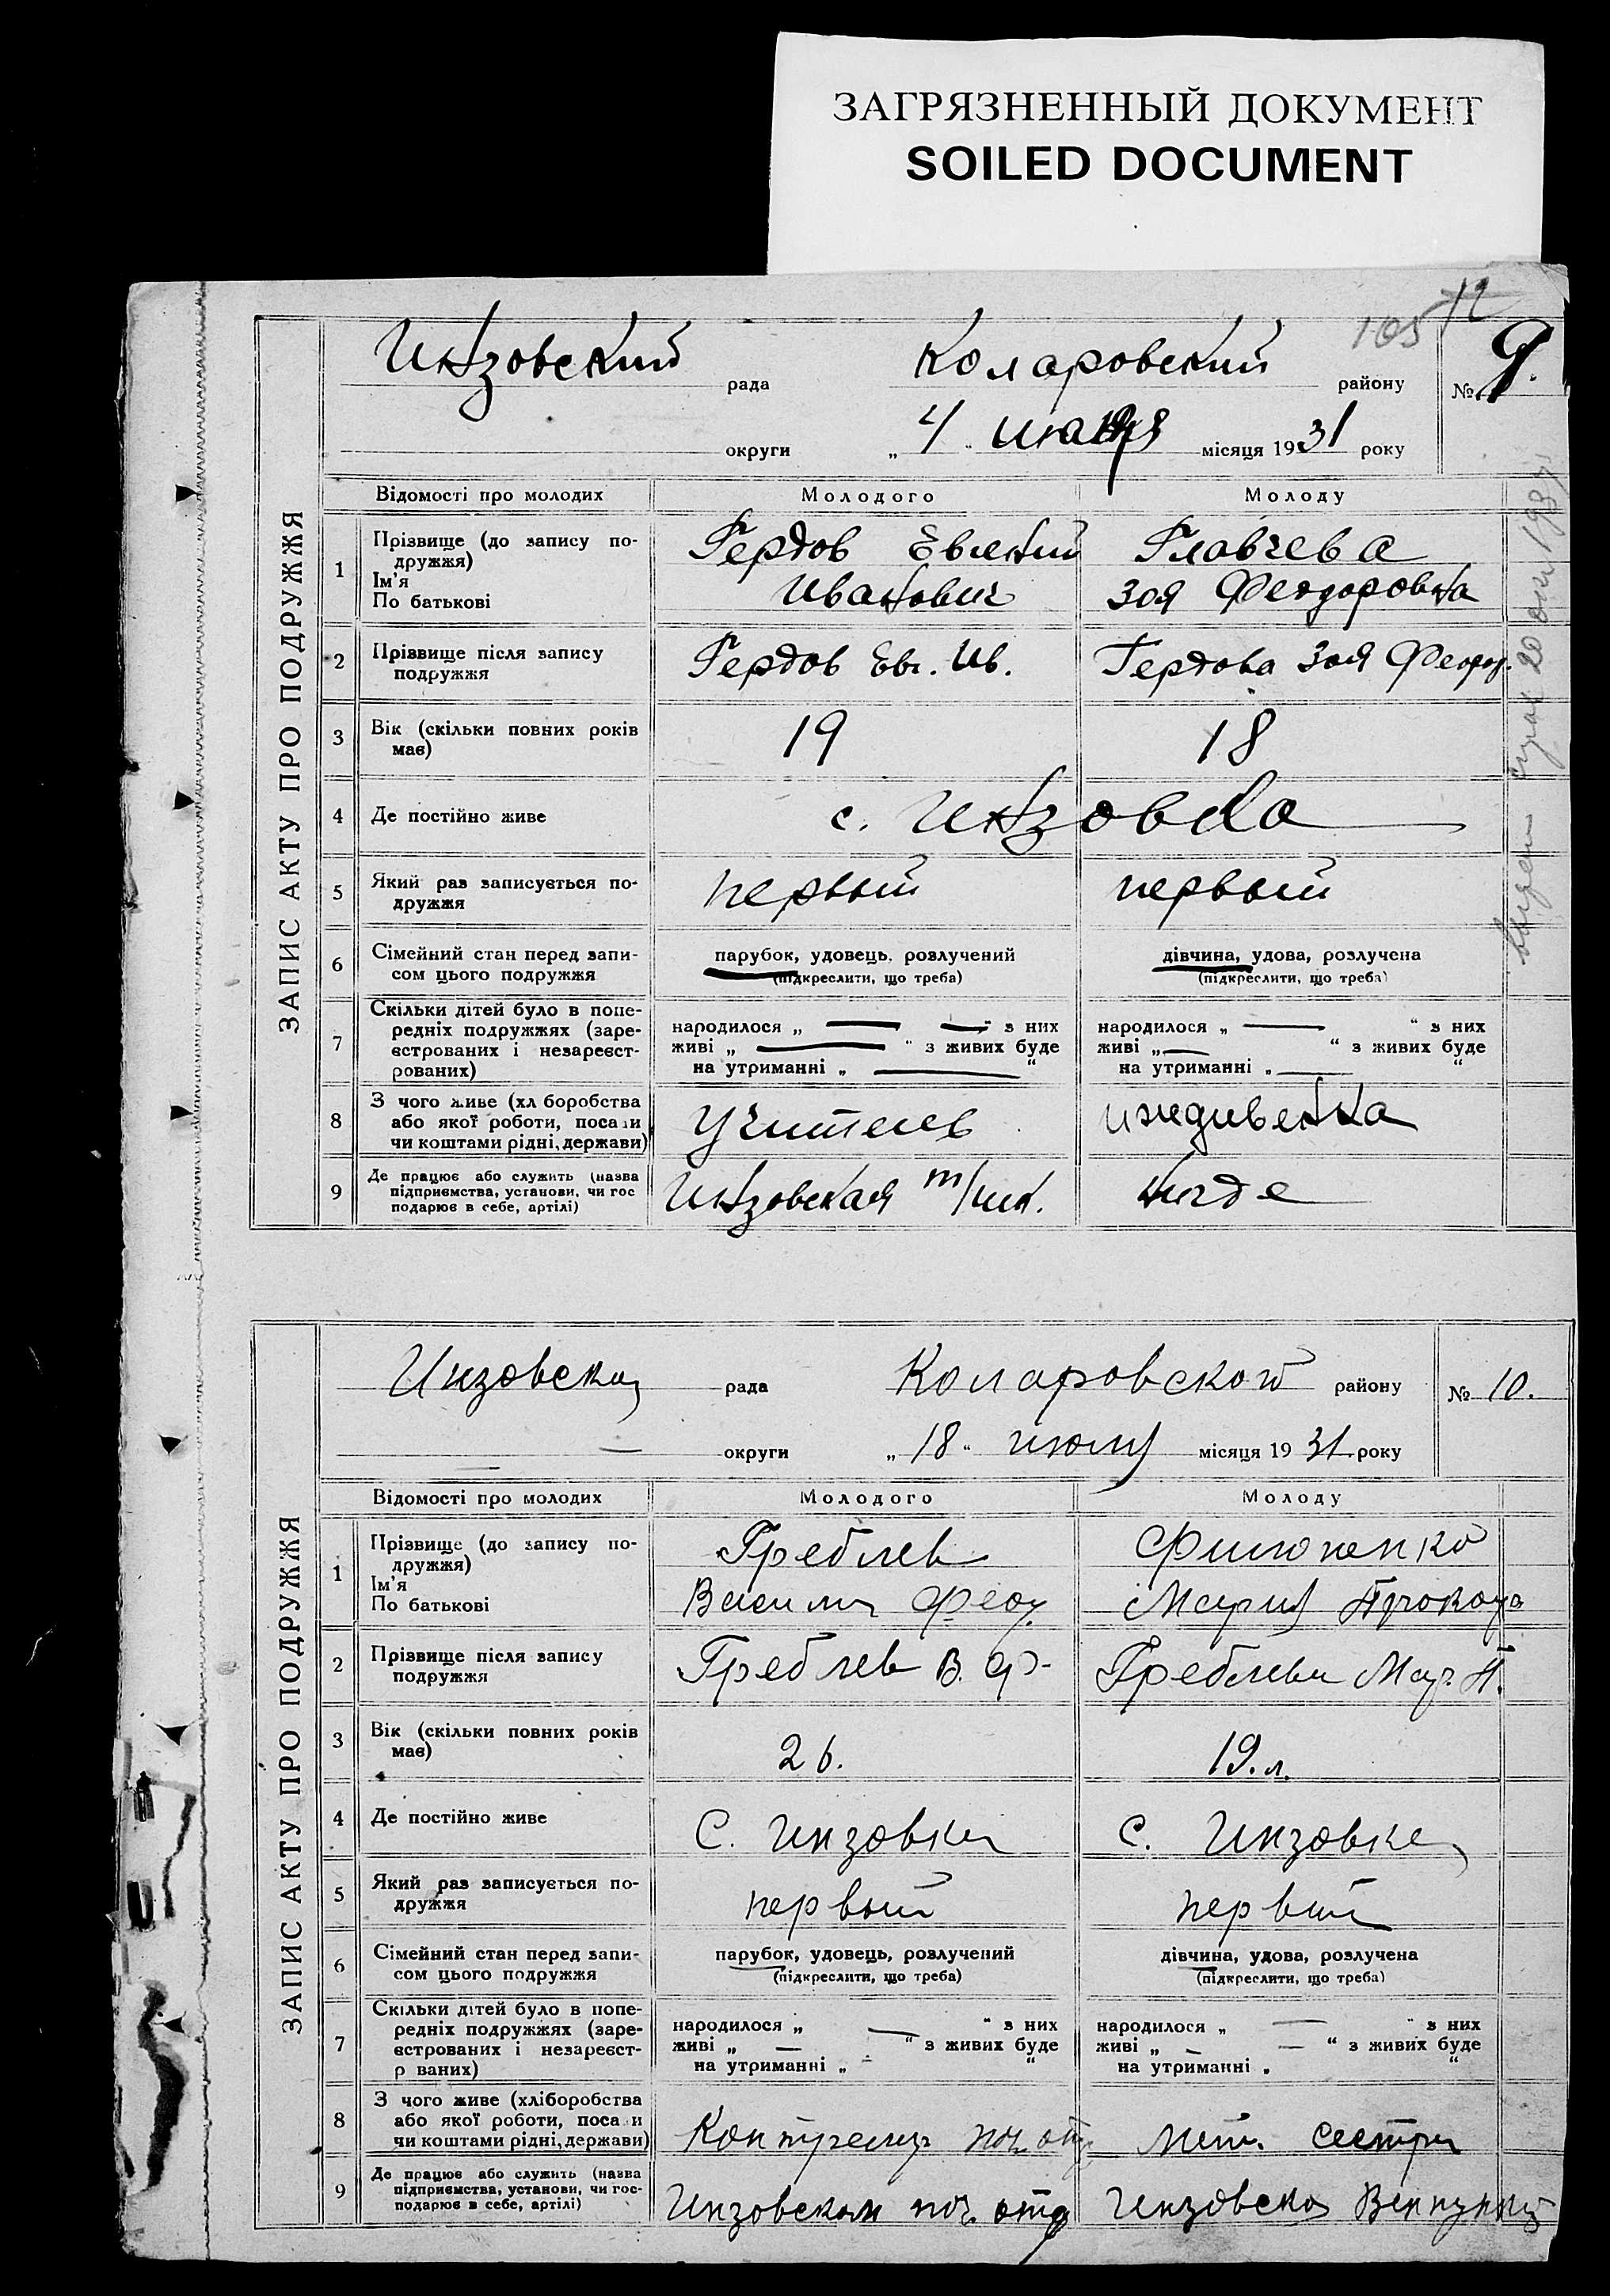 ЗАГРЯЗНЕННЫЙ ДОКУМЕНТ
SOILED DOCUMENT
12
105
ЗАПИС АКТУ ПРО ПОДРУЖЖЯ
Инзовский рада Коларовский району № 9.
округи „4" місяця 1931 року
Відомості про молодих Молодого Молоду
1 Прізвище (до запису по-
дружжя)
Ім'я
По батькові
Гердов Евгений
Иванович
Главчева
Зоя Феодоровна
2 Прізвище після запису
подружжя
Гердов Евг. Ив. Гердова Зоя Феодор.
3 Вік (скільки повних років
має)
19 18
4 Де постійно живе с. Инзовка
5 Який раз записується по-
дружжя
первый первый
6 Сімейний стан перед запи-
сом цього подружжя
парубок, удовець, розлучений
(підкреслити, що треба)
дівчина, удова, розлучена
(підкреслити, що треба)
7 Скільки дітей було в попе-
редніх подружжях (заре-
єстрованих і незареєст-
рованих)
народилося „ — — " з них
живі „ — " з живих буде
на утриманні „ — "
народилося „ — " з них
живі „ — " з живих буде
на утриманні „ — "
8 З чого живе (хл боробства
або якої роботи, посади
чи коштами рідні, держави)
Учитель иждивенка
9 Де працює або служить (назва
підприємства, установи, чи гос
подарює в себе, артілі)
Инзовская т/шк. нигде
ЗАПИС АКТУ ПРО ПОДРУЖЖЯ
Инзовская рада Коларовской району № 10.
— округи „18" июля місяця 1931 року
Відомості про молодих Молодого Молоду
1 Прізвище (до запису по-
дружжя)
Ім'я
По батькові
Греблев
Василий Феод.
Филоненко
Мария
2 Прізвище після запису
подружжя
Греблев В. Ф. Греблева Мар. П.
3 Вік (скільки повних років
має)
26. 19. л.
4 Де постійно живе С. Инзовка с. Инзовка
5 Який раз записується по-
дружжя
первый первый
6 Сімейний стан перед запи-
сом цього подружжя
парубок, удовець, розлучений
(підкреслити, що треба)
дівчина, удова, розлучена
(підкреслити, що треба)
7 Скільки дітей було в попе-
редніх подружжях (заре-
єстрованих і незареєст-
р ваних)
народилося „ — " з них
живі „ — " з живих буде
на утриманні „ - "
народилося „ — " з них
живі „ — — " з живих буде
на утриманні „ "
8 З чого живе (хліборобства
або якої роботи, поса и
чи коштами рідні, держави)
поч. отд. сестра
9 Де працює або служить (назва
підприємства, установи, чи гос-
подарює в себе, артілі)
Инзовском поч. отд Инзовском